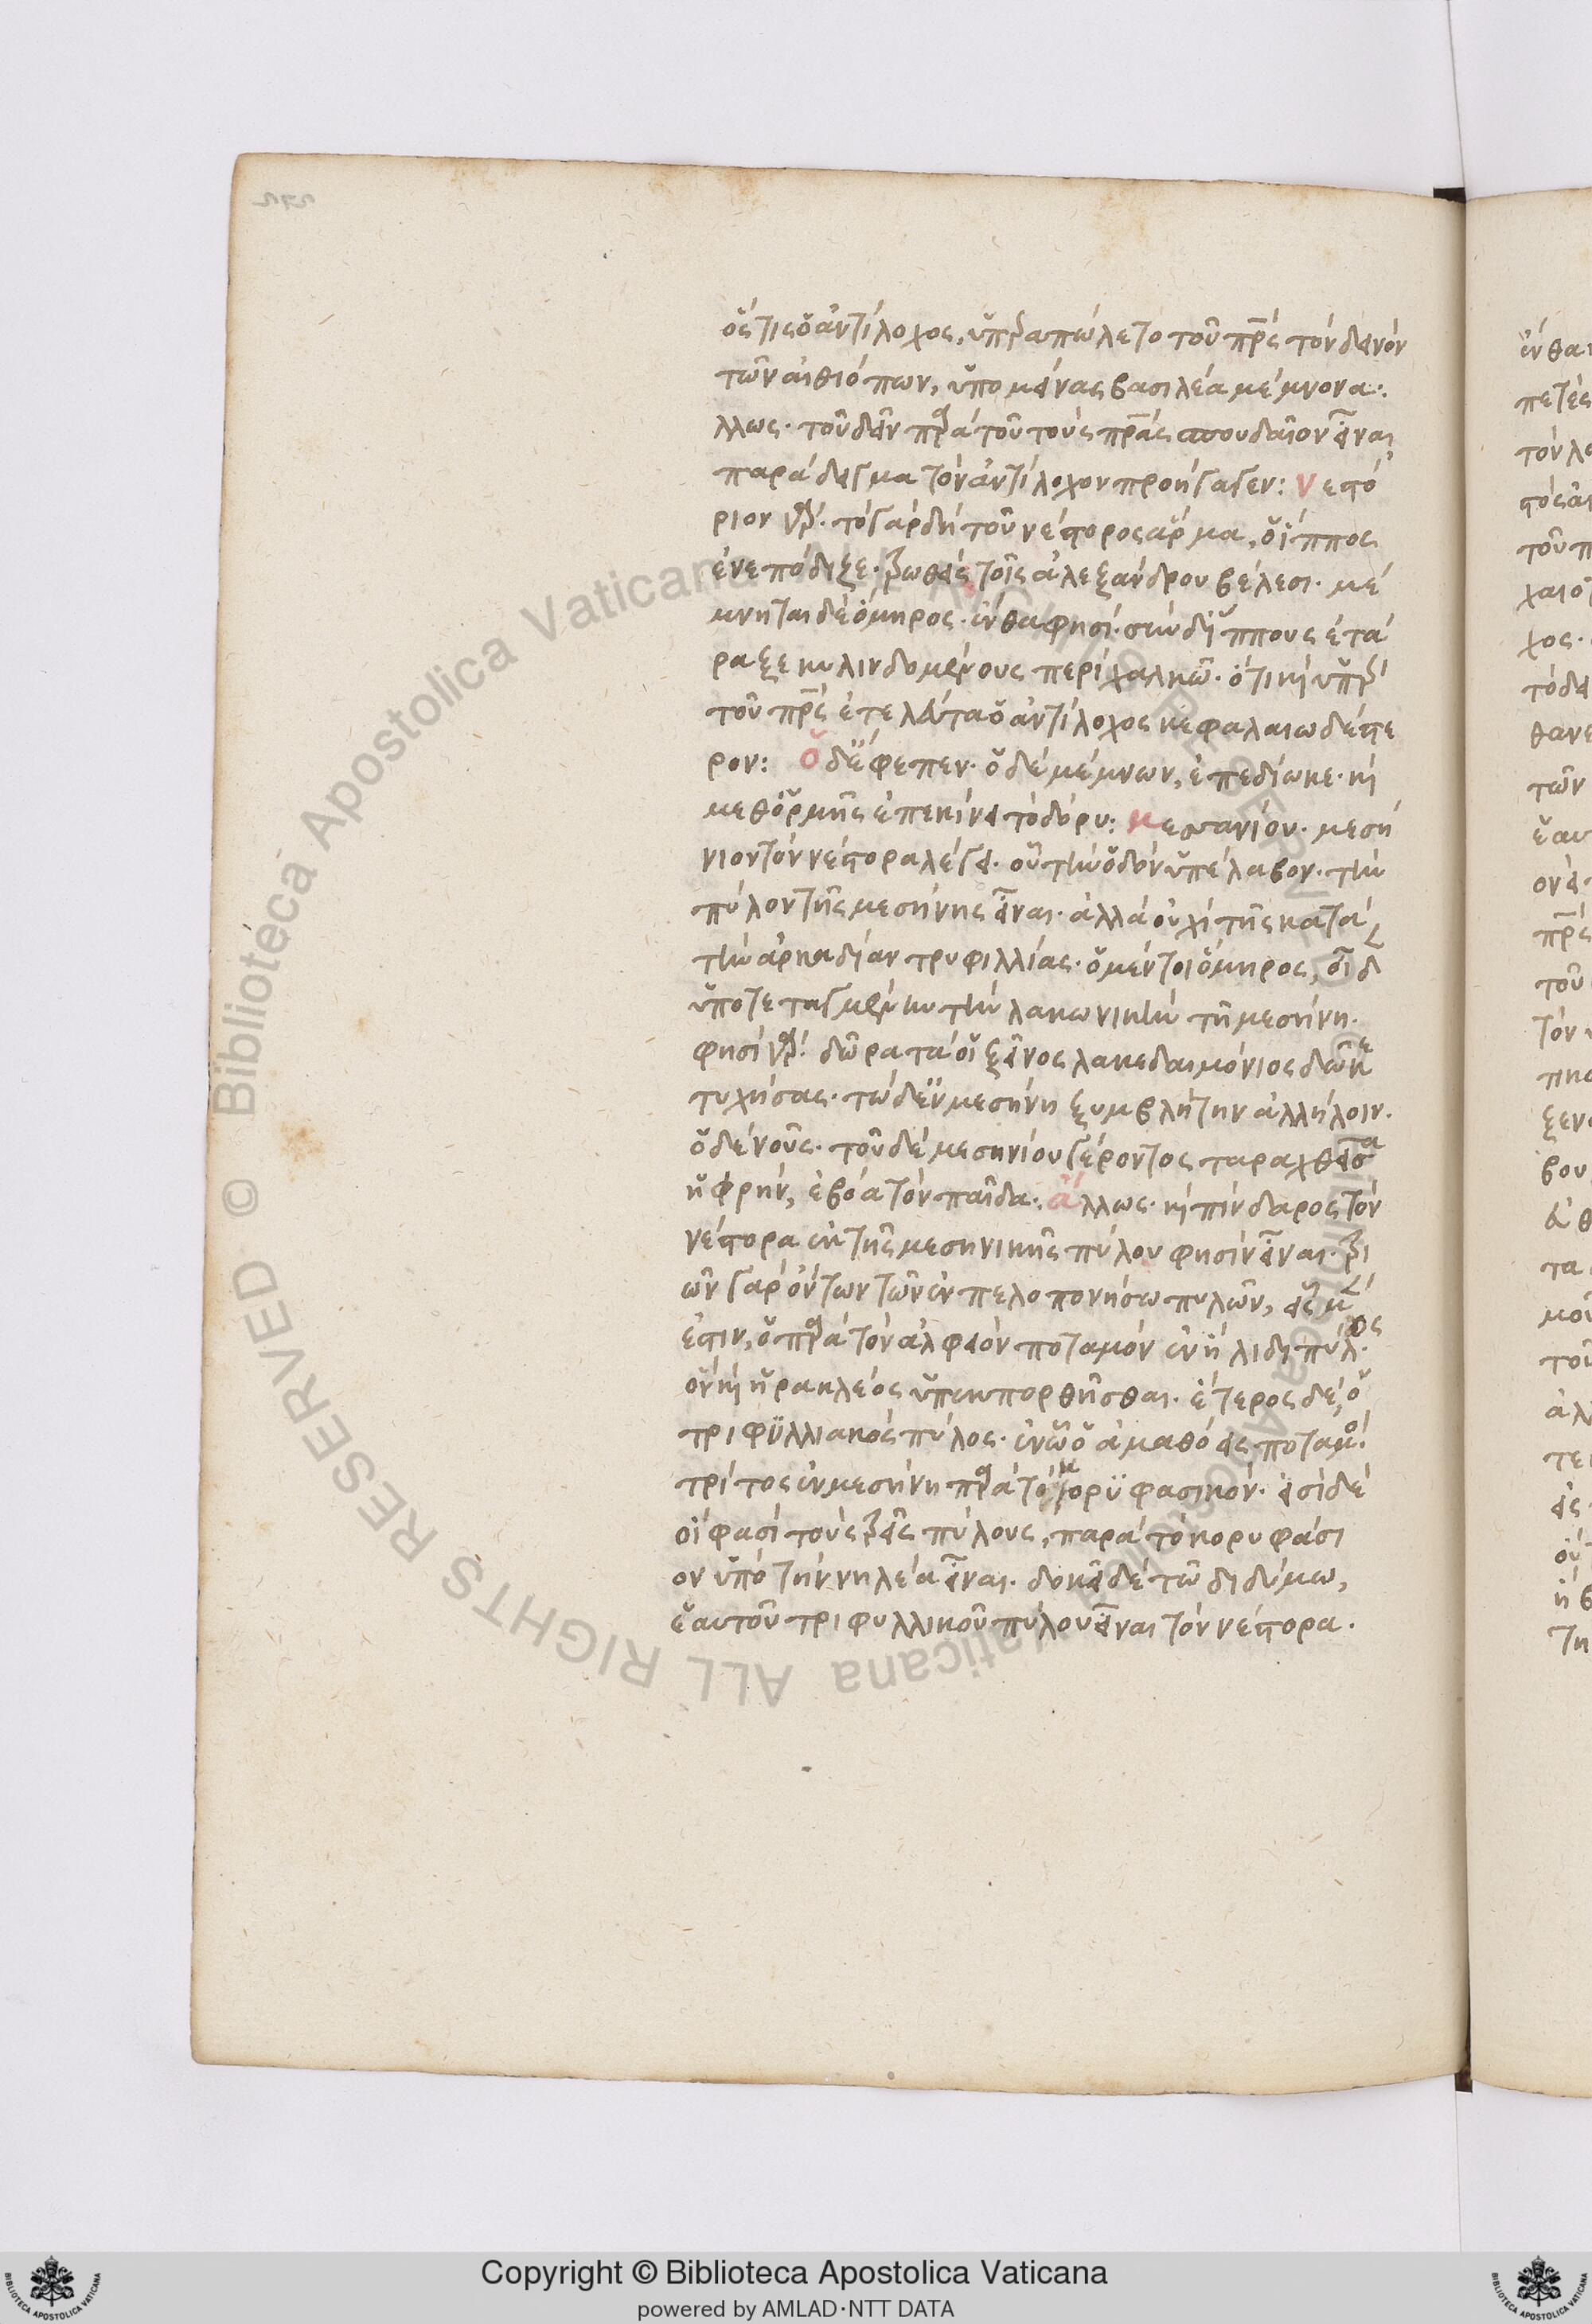 ὅς τις ὁ ἀντίλοχος, ὑπὲρ ἀπώλετο τοῦ πρς τὸν δεινὸν
τῶν αἰθιόπων, ὑπομείνας βασιλέα μέμνονα:
λλως. τοῦ δεῖν παρὰ τοῦ τοὺς πρας σπουδαῖον εἶναι
παράδειγμα τὸν ἀντίλοχον προήγαγεν: νεστό
ριον γὰρ. τὸ γὰρ δὴ τοῦ νέστορος ἅρμα, ὁ ἵππος
ἐνεπόδιξε. τρωθεὶς τοῖς ἀλεξάνδρου βέλεσι. μέ
μνηται δὲ ὅμηρος. ἔνθα φησί. σὺν δ' ἵππους ἐτά
ραξε κυλινδομένους περὶ χαλκῶ. ὅτι καὶ ὑπὲρ
τοῦ πρς ἐτελεύτα ὁ ἀντίλοχος κεφαλαιωδέστε
ρον: ὁ δ' ἔφεπεν. ὁ δὲ μέμνων, ἐπεδίωκε. καὶ
μεθ' ὁρμῆς ἐπεκίνει τὸ δόρυ: μεσσανίου. μεσή
νιον τὸν νέστορα λέγει. οὕτω ὁδὸν ὑπέλαβον. τὴν
πύλον τῆς μεσήνης εἶναι. ἀλλὰ οὐχὶ τῆς κατὰ
τὴν ἀρκαδίαν τρυφιλλίας. ὁ μέντοι ὅμηρος, οἶδ
ὑποτεταγμένην τὴν λακωνικὴν τῆ μεσήνη.
φησὶ γὰρ. δῶρα τά οἱ ξεῖνος λακεδαιμόνιος δῶκε
τυχήσας. τὼ δ' ἐν μεσήνη ξυμβλήτην ἀλλήλοιν.
ὁ δὲ νοῦς. τοῦ δὲ μεσηνίου γέροντος ταραχθεῖσα
ἡ φρήν, ἐβόα τὸν παῖδα: ἄλλως. καὶ πίνδαρος τὸν
νέστορα ἐκ τῆς μεσηνικῆς πύλου φησὶν εἶναι. τρι
ῶν γὰρ ὄντων τῶν ἐν πελοπονήσω πυλῶν, εἷς μ
ἐστιν, ὁ παρὰ τὸν ἀλφειὸν ποταμὸν ἐν ἤλιδι πύλος.
ὃν καὶ ἡρακλέος ὑπεκπορθῆσθαι. ἕτερος δὲ, ὁ
τριφϋλλιακὸς πύλος. ἐν ὧ ὁ ἀμαθόεις ποταμό.
τρίτος ἐν μεσήνη παρὰ τὸ κορϋφασικόν. εἰσὶ δέ
οἵ φασι τοὺς τρεῖς πύλους, παρὰ τὸ κορυφάσι
ον ὑπὸ τὴν νηλέα εἶναι. δοκεῖ δὲ τῶ διδύμω,
ἑαυτοῦ τριφυλλικοῦ πύλου εἶναι τὸν νέστορα.
Copyright © Biblioteca Apostolica Vaticana
powered by AMLAD·NTT DATA